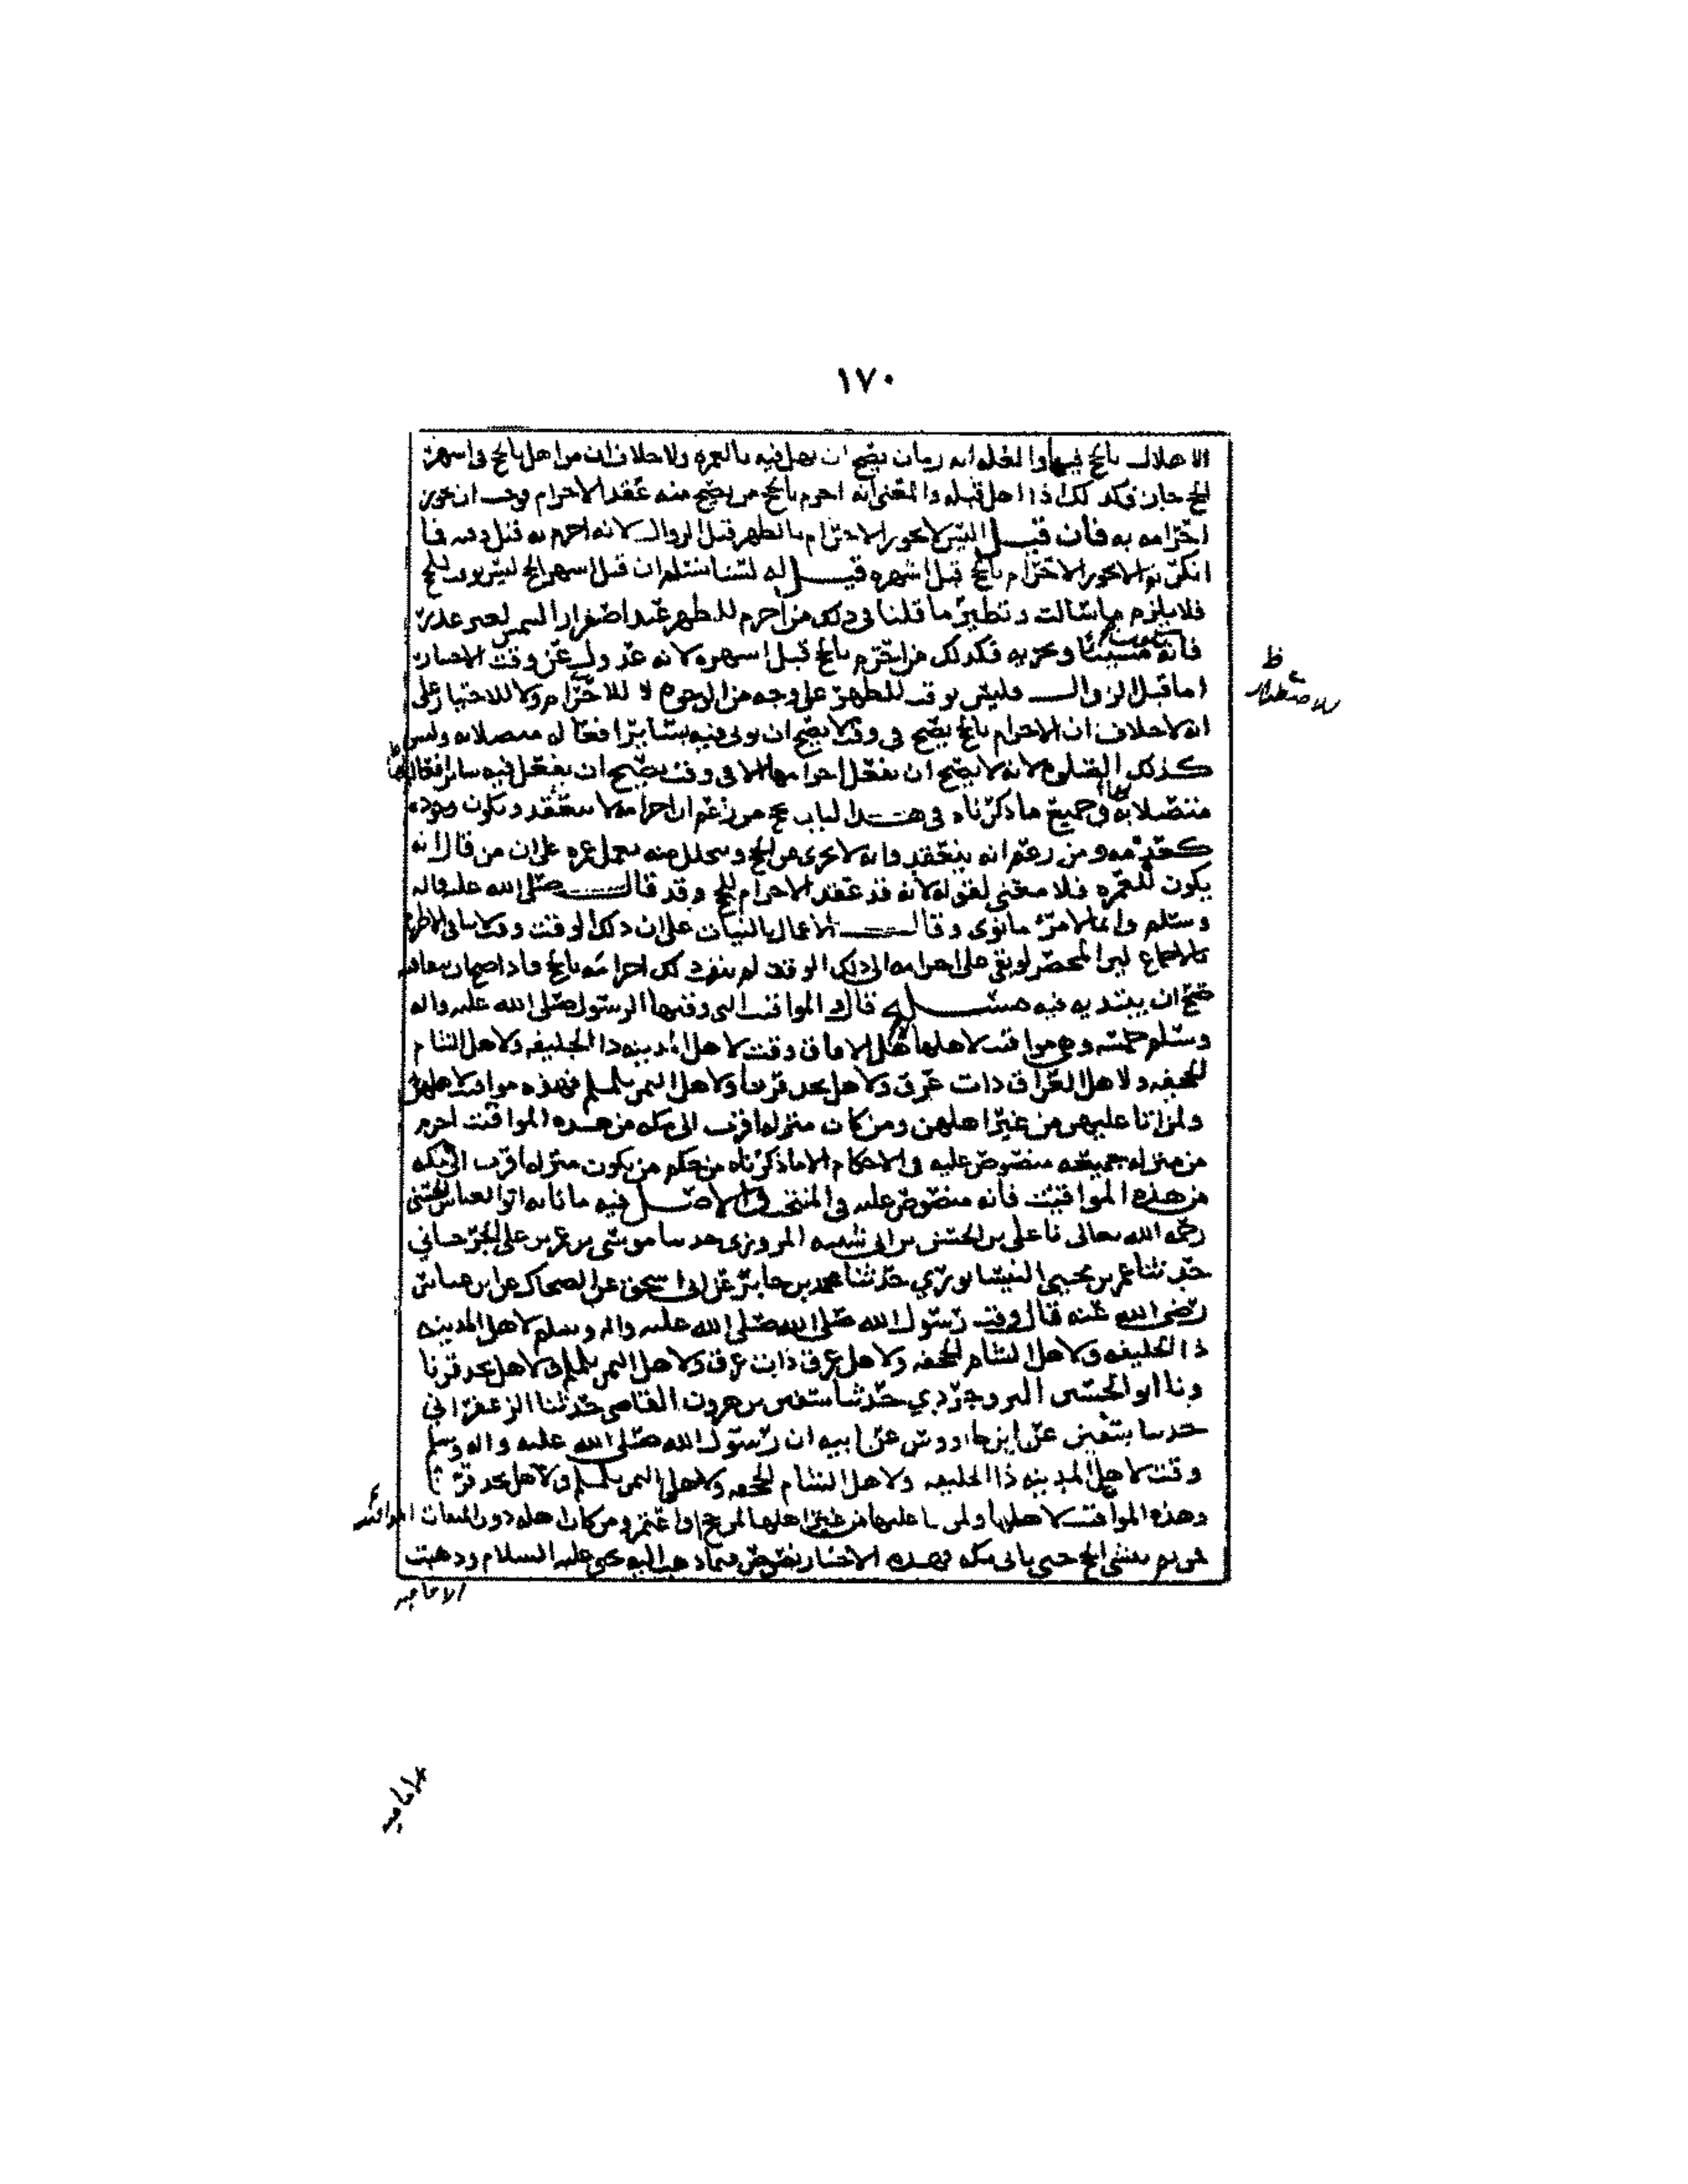 ١٧٠
الاهلال بالحج فيها والعله انه زمان يصح ان يهل فيه بالعمره ولا خلاف ان من اهل بالحج في اشهر
الحج جاز فكذلك اذا اهل قبله والمعنى انه احرم بالحج من يصح منه عقد الاحرام فوجب ان يجوز
احرامه به فان قيل اليس لا يجوز الاحرام بالظهر قبل الزوال لانه احرم به قبل وقته فما
انكرتم الا يجوز الاحرام بالحج قبل اشهره قيل له لسنا نسلم ان قبل اشهر الحج ليس بوقت للحج
فلا يلزم ما سالت ونظير ما قلنا في ذلك من احرم للظهر عند اصفرار الشمس لغير عذر
فانه مسيئا ويجزيه فكذلك من احرم بالحج قبل اشهره لانه عدول عن وقت الاختيار
اما قبل الزوال فليس بوقت للظهر على وجه من الوجوه لا للاحرام ولا للاختيار على
للاضطرار ظ
انه لا خلاف ان الاحرام بالحج يصح في وقت لا يصح ان يوتى فيه بسائر افعاله متصلا به وليس
كذلك الصلوه لانه لا يصح ان يفعل احرامها الا في وقت يصح ان يفعل فيه سائر افعالها
متصلا به وجميع ما ذكرناه في هذا الباب يحج من زعم ان احرامه لا ينعقد ويكون وجوده
كعدمه ومن زعم انه ينعقد فانه لا يجزي عن الحج ويتحلل منه بعمل عمره على ان من قال انه
يكون للعمره فلا معنى لقوله لانه قد عقد الاحرام للحج وقد قال صلى الله عليه واله
وسلم وانما لامرئ ما نوى وقال الاعمال بالنيات على ان ذلك الوقت وقت
بالاجماع ليس المحصر لو بقي على احرامه الى ذلك الوقت لم يفسد ذلك احرامه بالحج فاذا صح ان يبقا فيه
صح ان يبتديه فيه مسئله قال والمواقيت التي وقتها الرسول صلى الله عليه واله
وسلم خمسه وهي مواقيت لاهلها ولاهل الافاق وقت لاهل المدينه ذا الحليفه ولاهل الشام
الجحفه ولاهل العراق ذات عرق ولاهل نجد قرنا ولاهل اليمن يلملم فهذه مواقيت لاهلهن
ولمن اتا عليهن من غير اهلهن ومن كان منزله اقرب الى مكه من هذه المواقيت احرم
من منزله جميعه منصوص عليه في الاحكام الا ما ذكرناه من حكم من يكون منزله اقرب الى مكه
من هذه المواقيت فانه منصوص عليه في المنتخب والاصل فيه ما نا به ابو العباس الحسني
رحمه الله تعالى نا علي بن الحسن بن ابي شيبه المروزي حدثنا موسى بن عمر بن علي الجرجاني
حدثنا عمر بن يحيى النيسابوري حدثنا محمد بن جابر عن ابي اسحق عن الضحاك عن ابن عباس
رضي الله عنه قال وقت رسول الله صلى الله صلى الله عليه واله وسلم لاهل المدينه
ذا الحليفه ولاهل الشام الجحفه ولاهل عرق ذات عرق ولاهل اليمن يلملم ولاهل نجد قرنا
ونا ابو الحسين البروجردي حدثنا سفين بن هرون القاضي حدثنا الزعفراني
حدثنا سفين عن ابن طاووس عن ابيه ان رسول الله صلى الله عليه واله وسلم
وقت لاهل المدينه ذا الحليفه ولاهل الشام الجحفه ولاهل اليمن يلملم ولاهل نجد قرنا
وهذه المواقيت لاهلها ولمن اتا عليها من غير اهلها لمن حج او اعتمر ومن كان اهله دون الميقات
ثم ينشئ الحج حتى ياتي مكه فهذه الاخبار نصوص فيما ذهب اليه يحيى عليه السلام وذهبت
الاماميه
الاماميه